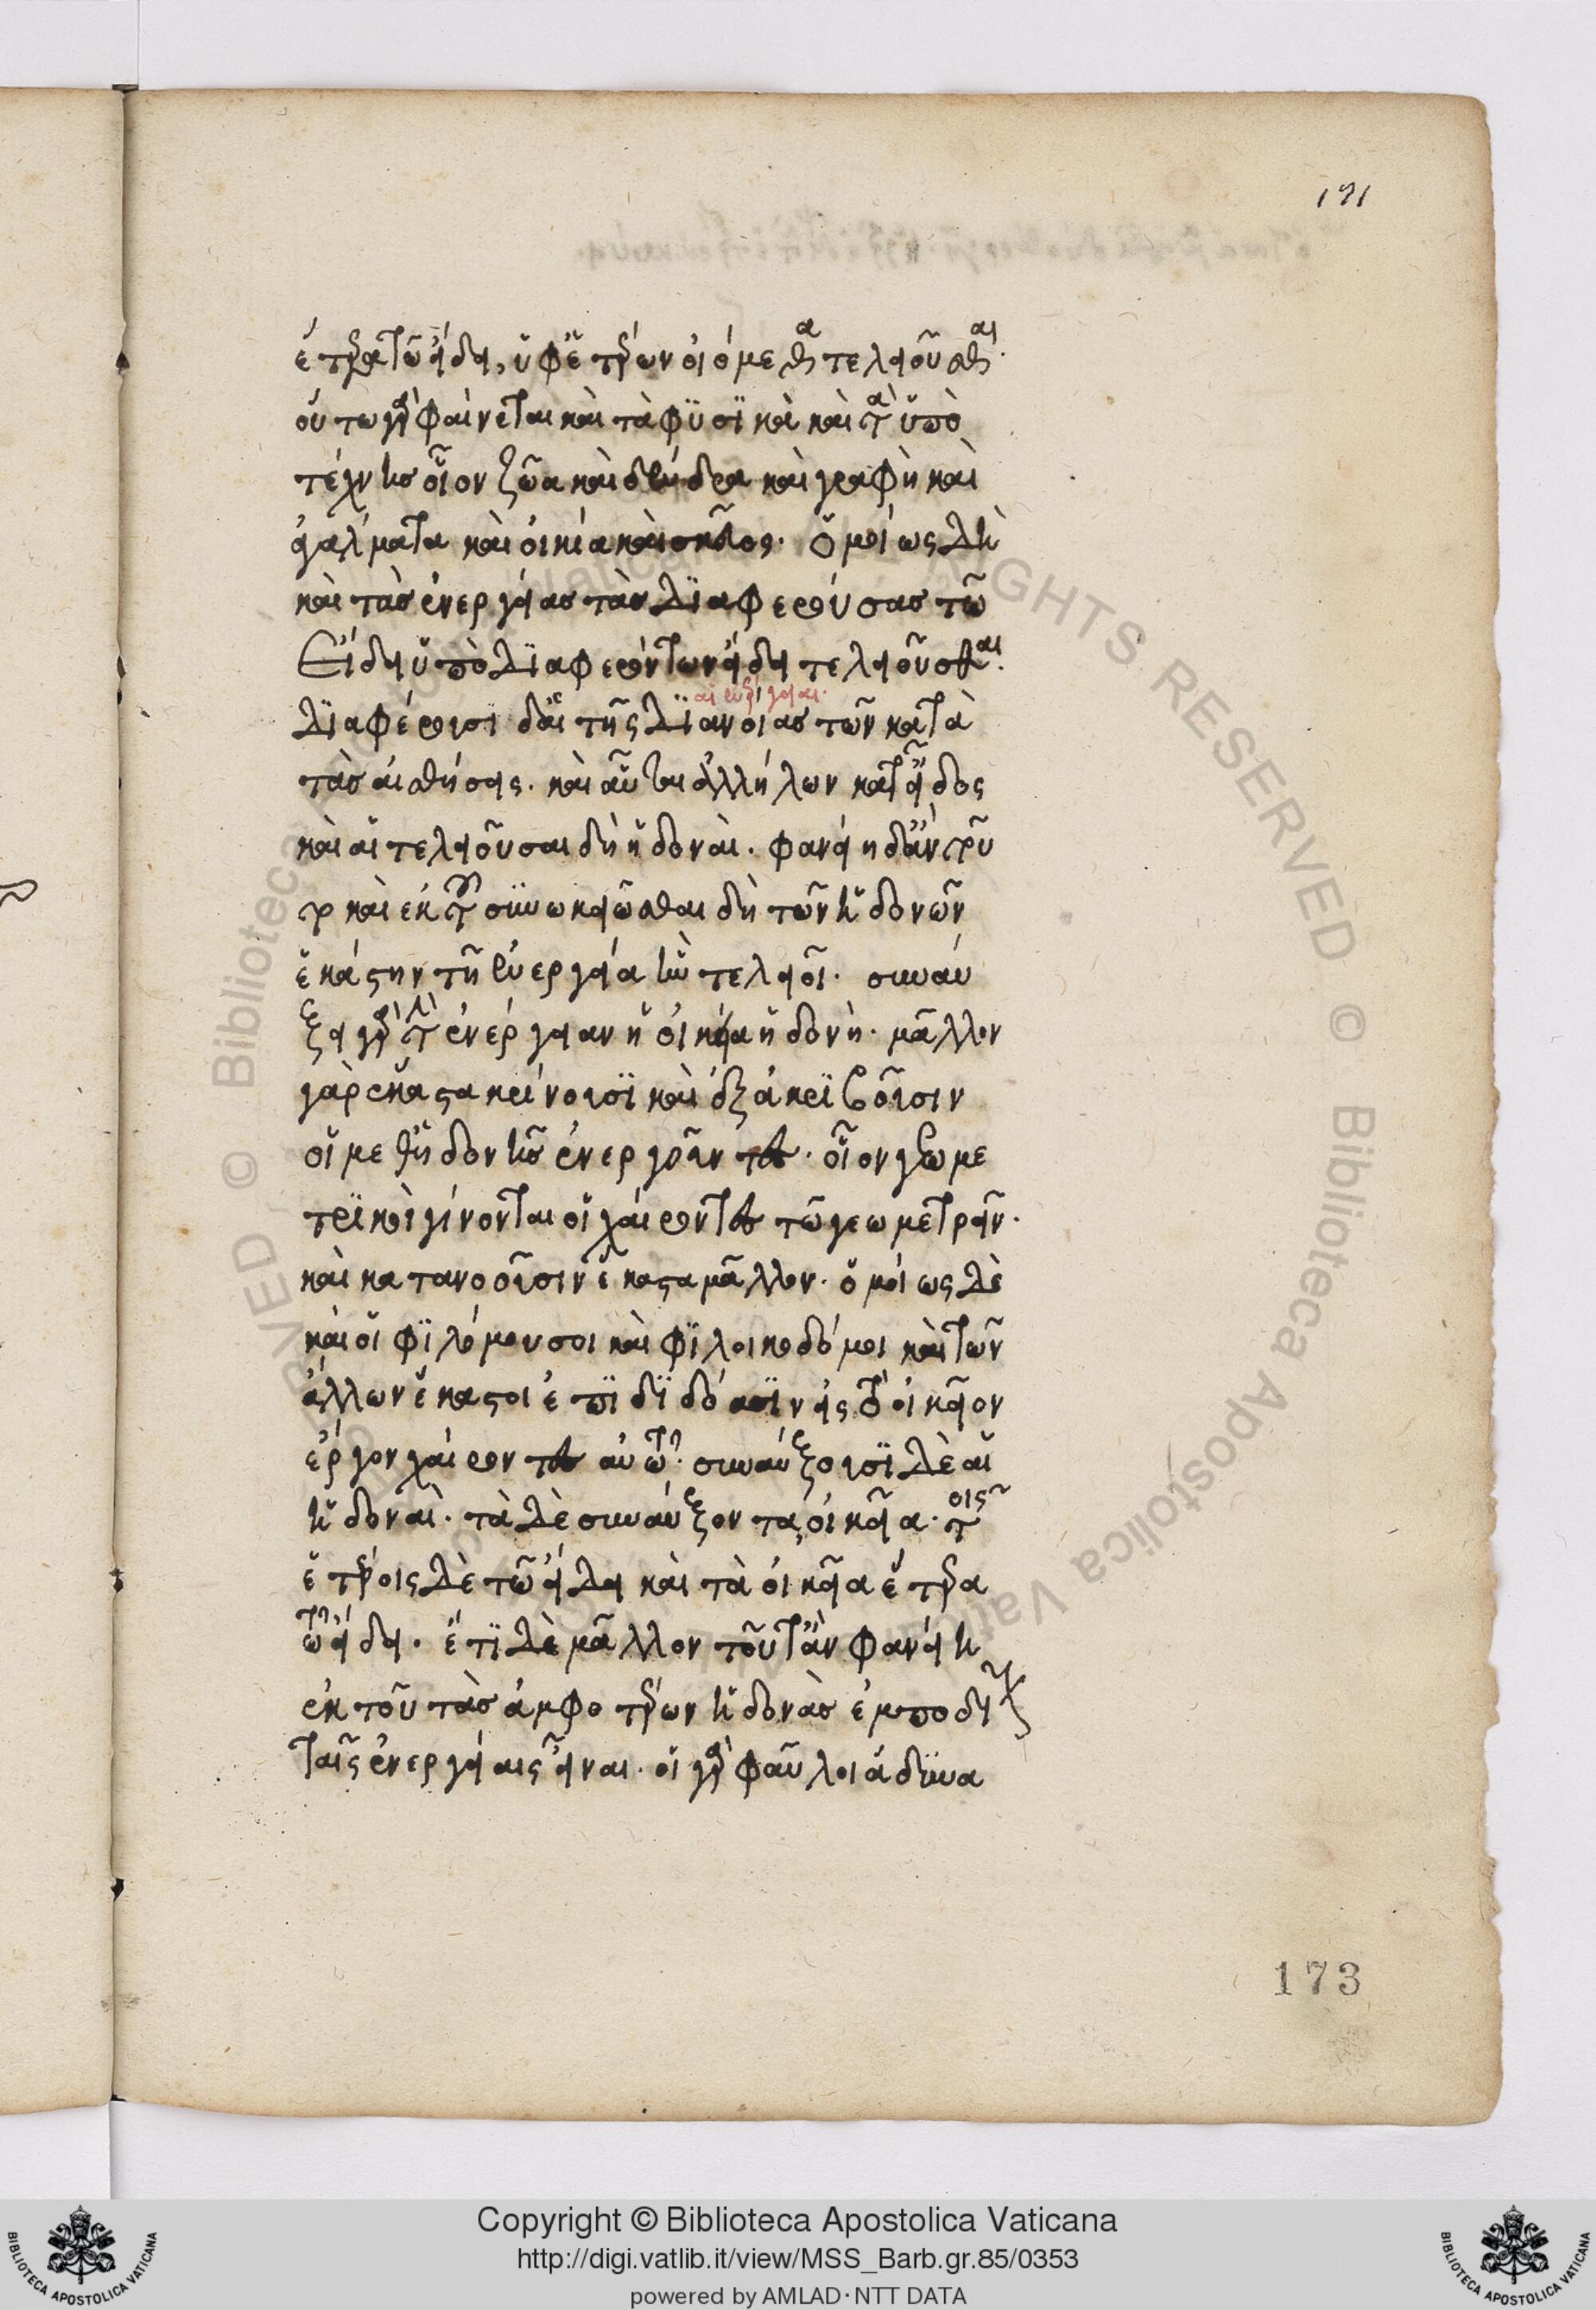 171
ἕτερα τῷ εἴδει, ὑφ' ἑτέρων οἰόμεθα τελειοῦσθαι·
οὕτω γὰρ φαίνεται καὶ τὰ φυσικὰ καὶ τὰ ὑπὸ
τέχνης οἷον ζῷα καὶ δένδρα καὶ γραφὴ καὶ
ἀγάλματα καὶ οἰκία καὶ σκεῦος· ὁμοίως δὴ
καὶ τὰς ἐνεργείας τὰς διαφερούσας τῷ
εἴδει ὑπὸ διαφερόντων εἴδει τελειοῦσθαι·
αἱ ἐνέργειαι·
διαφέρουσι δ' αἱ τῆς διανοίας τῶν κατὰ
τὰς αἰσθήσεις· καὶ αὗται ἀλλήλων κατ' εἶδος
καὶ αἱ τελειοῦσαι δὴ ἡδοναί· φανείη δ' ἂν τοῦ
το καὶ ἐκ τοῦ συνῳκειῶσθαι δὴ τῶν ἡδονῶν
ἑκάστην τῇ ἐνεργείᾳ ἣν τελειοῖ· συναύ
ξει γὰρ τὴν ἐνέργειαν ἡ οἰκεία ἡδονή· μᾶλλον
γὰρ ἕκαστα κρίνουσι καὶ ἐξακριβοῦσιν
οἱ μεθ' ἡδονῆς ἐνεργοῦντες· οἷον γεωμε
τρικοὶ γίνονται οἱ χαίροντες τῷ γεωμετρεῖν·
καὶ κατανοοῦσιν ἕκαστα μᾶλλον· ὁμοίως δὲ
καὶ οἱ φιλόμουσοι καὶ φιλοικοδόμοι καὶ τῶν
ἄλλων ἕκαστοι ἐπιδιδόασιν εἰς τὸ οἰκεῖον
ἔργον χαίροντες αὐτῷ· συναύξουσι δὲ αἱ
ἡδοναί· τὰ δὲ συναύξοντα, οἰκεῖα· τοῖς
ἑτέροις δὲ τῷ εἴδει καὶ τὰ οἰκεῖα ἕτερα
τῷ εἴδει· ἔτι δὲ μᾶλλον τοῦτ' ἂν φανείη
ἐκ τοῦ τὰς ἀφ' ἑτέρων ἡδονὰς ἐμποδί
ταῖς ἐνεργείαις εἶναι· οἱ γὰρ φαῦλοι ἀδυνα
173
Copyright © Biblioteca Apostolica Vaticana
http://digi.vatlib.it/view/MSS_Barb.gr.85/0353
powered by AMLAD·NTT DATA